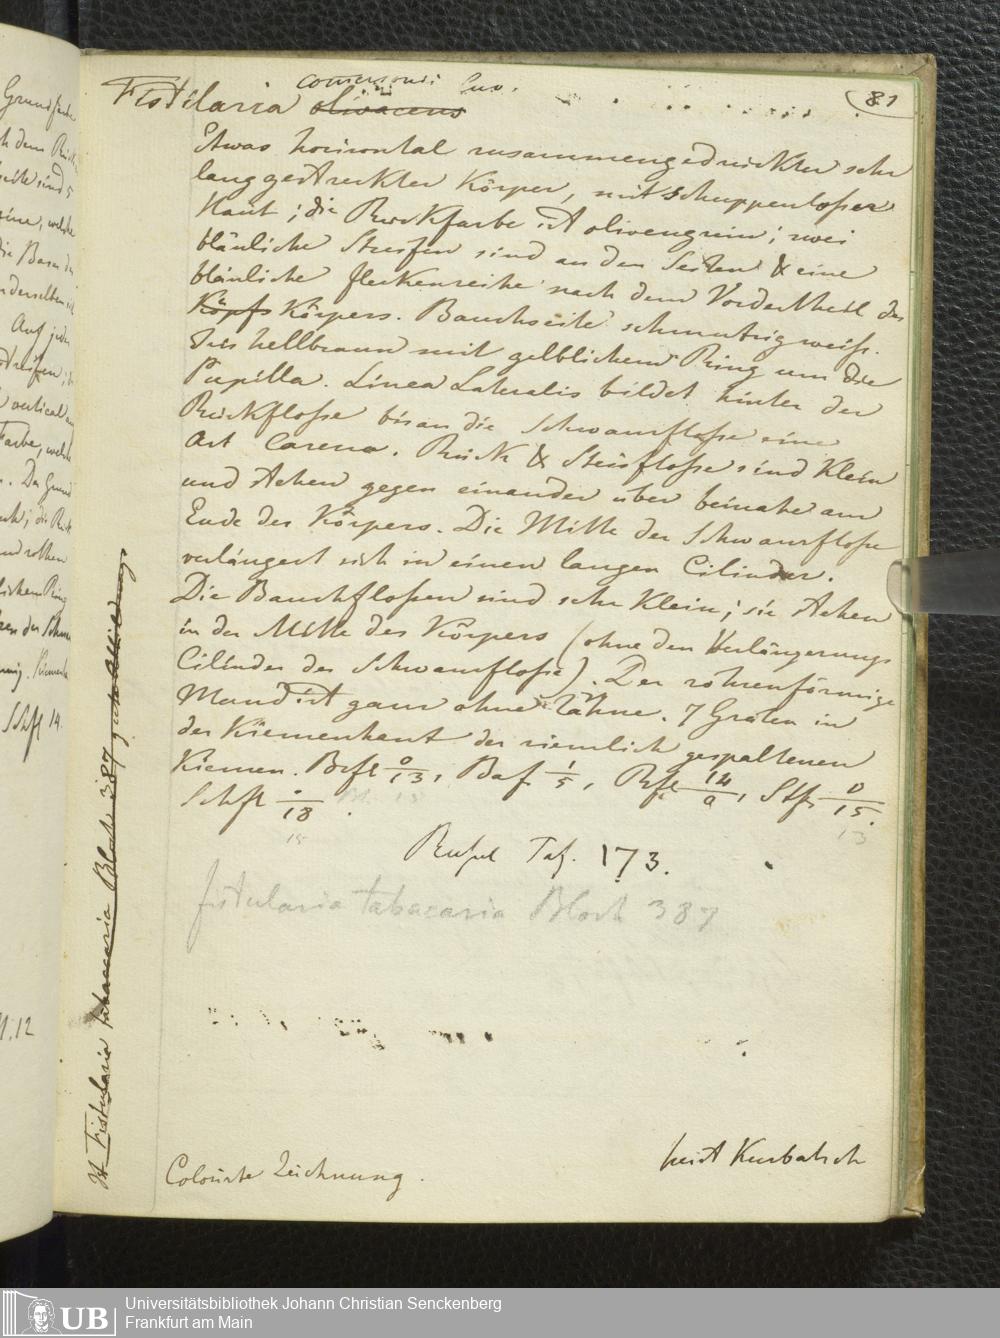 81
Fistularia olivaceus Comersoni Cuv.
Etwas horizontal zusammengedrückter sehr
langgestreckter Körper, mit schuppenloser
Haut; die Rückfarbe ist olivengrün; zwei
bläuliche Streifen sind an den Seiten & eine
bläuliche Fleckenreihe nach dem Vordertheil des
Kopfs Körpers. Bauchseite schmutzig weiss.
Iris hellbraun mit gelblichem Ring um die
Pupilla. Linea Lateralis bildet hinter der
Rückflosse bis an die Schwanzflosse eine
Art Carena. Rück & Steisflosse sind Klein
und stehen gegen einander über beinahe am
Ende des Körpers. Die Mitte der Schwanzflosse
verlängert sich in einen langen Cilinder.
Die Bauchflossen sind sehr Klein; sie stehen
in der Mitte des Körpers (ohne den Verlängerungs
Cilinder der Schwanzflosse). Der röhrenförmige
Mund ist ganz ohne Zähne. 7 Gräten in
der Kiemenhaut der ziemlich gespaltenen
Kiemen. Brfl 0/13, Baf 1/5, Rfl 14/0, Stfl 0/15.
Schfl 0/18. M. 15
15
13
Rüppel Taf. 173.
fistularia tabacaria Bloch 387
Ist Fistularia tabacaria Bloch 387 gute Abbildung
Colorirte Zeichnung.
heist Kurbatsch
M. 12
Schfl 14.
Universitätsbibliothek Johann Christian Senckenberg
Frankfurt am Main
UB